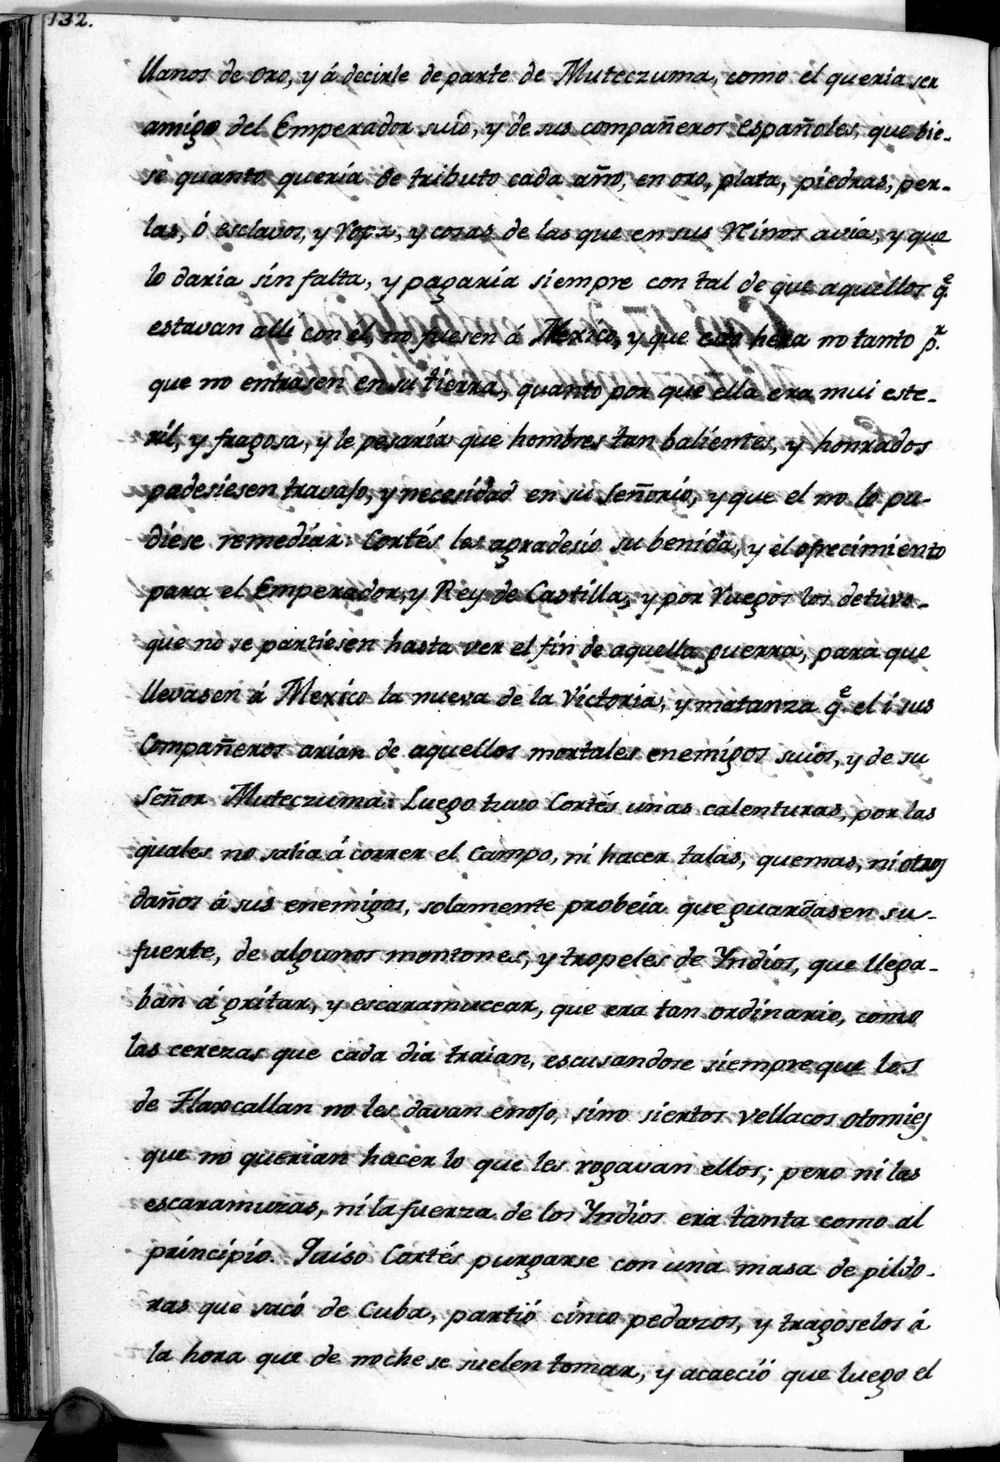 132.
llanos de oro, y á decirle de parte de Muteczuma, como el queria ser
amigo del Emperador suio, y de sus compañeros españoles, que bie-
se quanto quería de tributo cada año, en oro, plata, piedras, per-
las, ó esclavos, y Ropa, y cosas de las que en sus Reinos avia, y que
lo daria sin falta, y pagaría siempre con tal de que aquellos q.e
estavan alli con él, no fuesen á Mexico, y que esto hera no tanto p.r
que no entrasen en su tierra, quanto por que ella era mui este-
ril, y fragosa, y le pesaría que hombres tan balientes, y honrados
padesiesen travajo, y necesidad en su señorio, y que el no lo pu-
diese remediar. Cortés les agradesió su benida, y el ofrecimiento
para el Emperador, y Rey de Castilla, y por Ruegos los detuvo-
que no se partiesen hasta ver el fin de aquella guerra, para que
llevasen á Mexico la nueva de la Victoria, y matanza q.e el i sus
Compañeros arian de aquellos mortales enemigos suios, y de su
Señor Muteczuma. Luego tuvo Cortés unas calenturas, por las
quales no salia á correr el Campo, ni hacer talas, quemas, ni otros
daños á sus enemigos, solamente probeía que guardasen su-
fuerte, de algunos montones, y tropeles de Yndios, que llega-
ban á gritar, y escaramucear, que era tan ordinario, como
las cerezas que cada dia traian, escusandose siempre que los
de Tlaxcallan no les davan enojo, sino siertos vellacos otomies
que no querian hacer lo que les rogavan ellos; pero ni las
escaramuzas, ni la fuerza de los Yndios era tanta como al
principio. Quiso Cortés purgarse con una masa de pildo-
ras que sacó de Cuba, partió cinco pedazos, y tragoselos á
la hora que de noche se suelen tomar, y acaeció que luego el